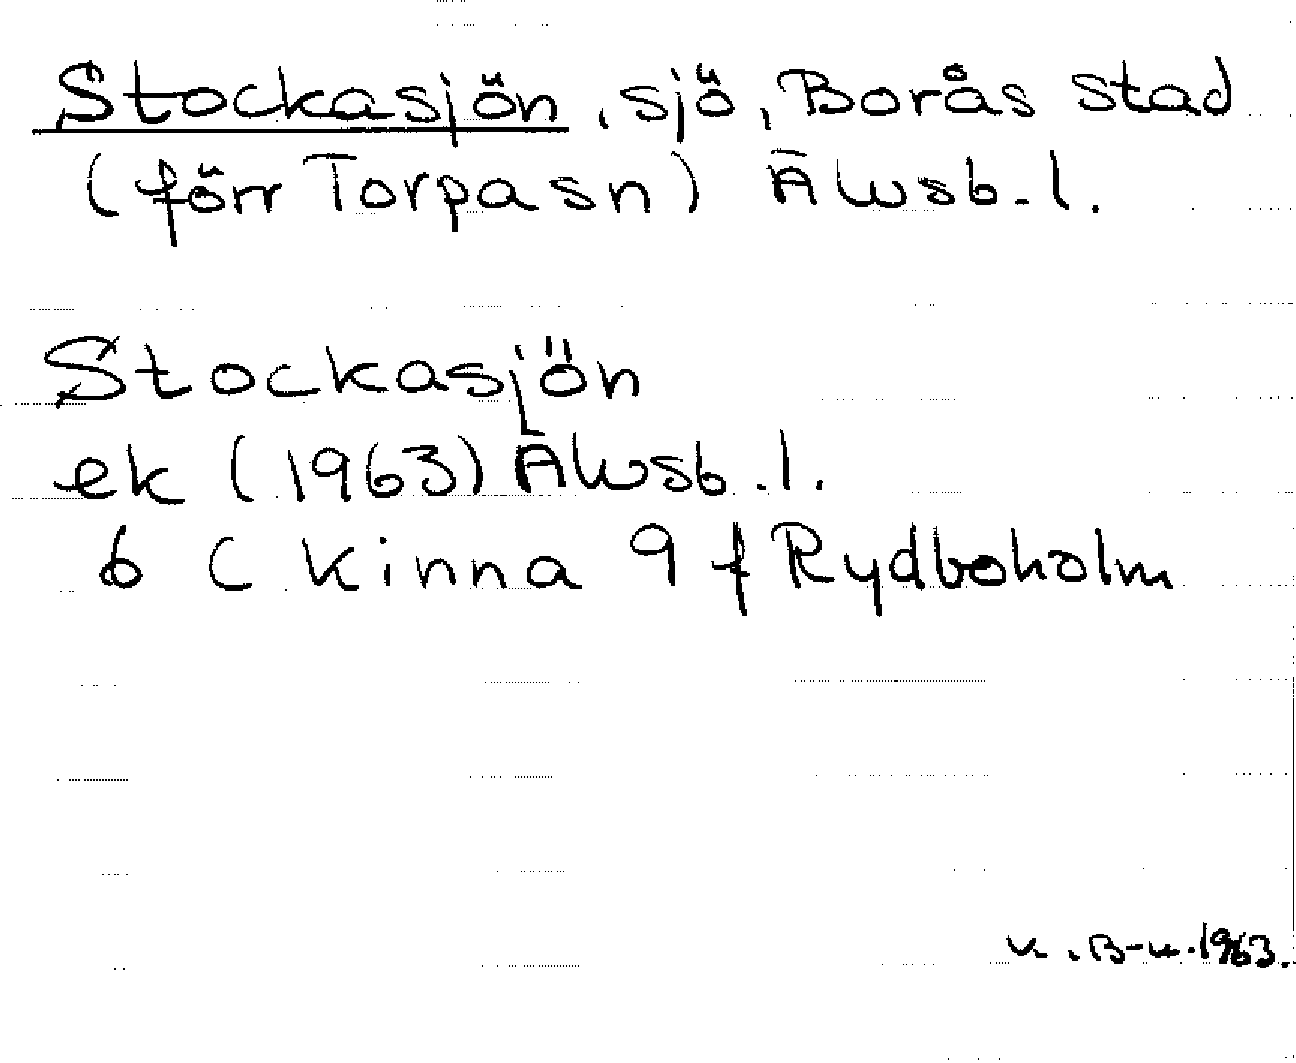 Stockasjön, sjö, Borås stad
(förr Torpa sn) Älvsb. l.
Stockasjön
ek (1963) Älvsb. l.
6 C Kinna 9 f Rydboholm
1963.